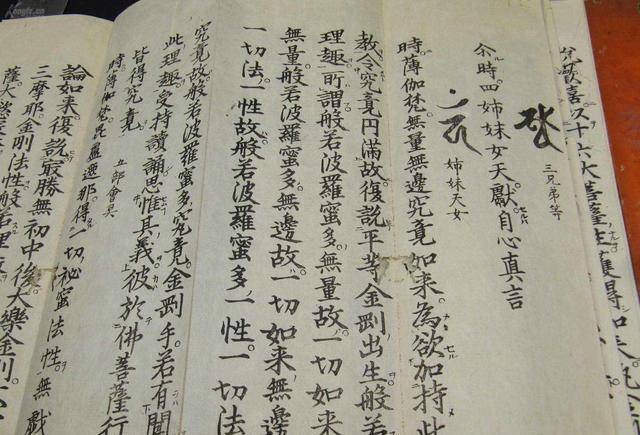 歡喜以十六大菩薩生獲得如来
三兄弟等
尒時四姉妹女天獻自心真言
姉妹天女
時薄伽梵無量無邊究竟如来為欲加持此
教令究竟円滿故復說平等金剛出生般若
理趣所謂般若波羅蜜多無量故一切如来
無量般若波羅蜜多無邊故一切如来無邊
一切法一性故般若波羅蜜多一性一切法
究竟故般若波羅蜜多究竟金剛手若有聞
此理趣受持讀誦思惟其義彼於佛菩薩行
皆得究竟
五部會
時薄伽梵毘盧遮那得一切祕密法性無戲
論如来復說最勝無初中後大樂金剛
三摩耶金剛法性般若理趣
薩大欲